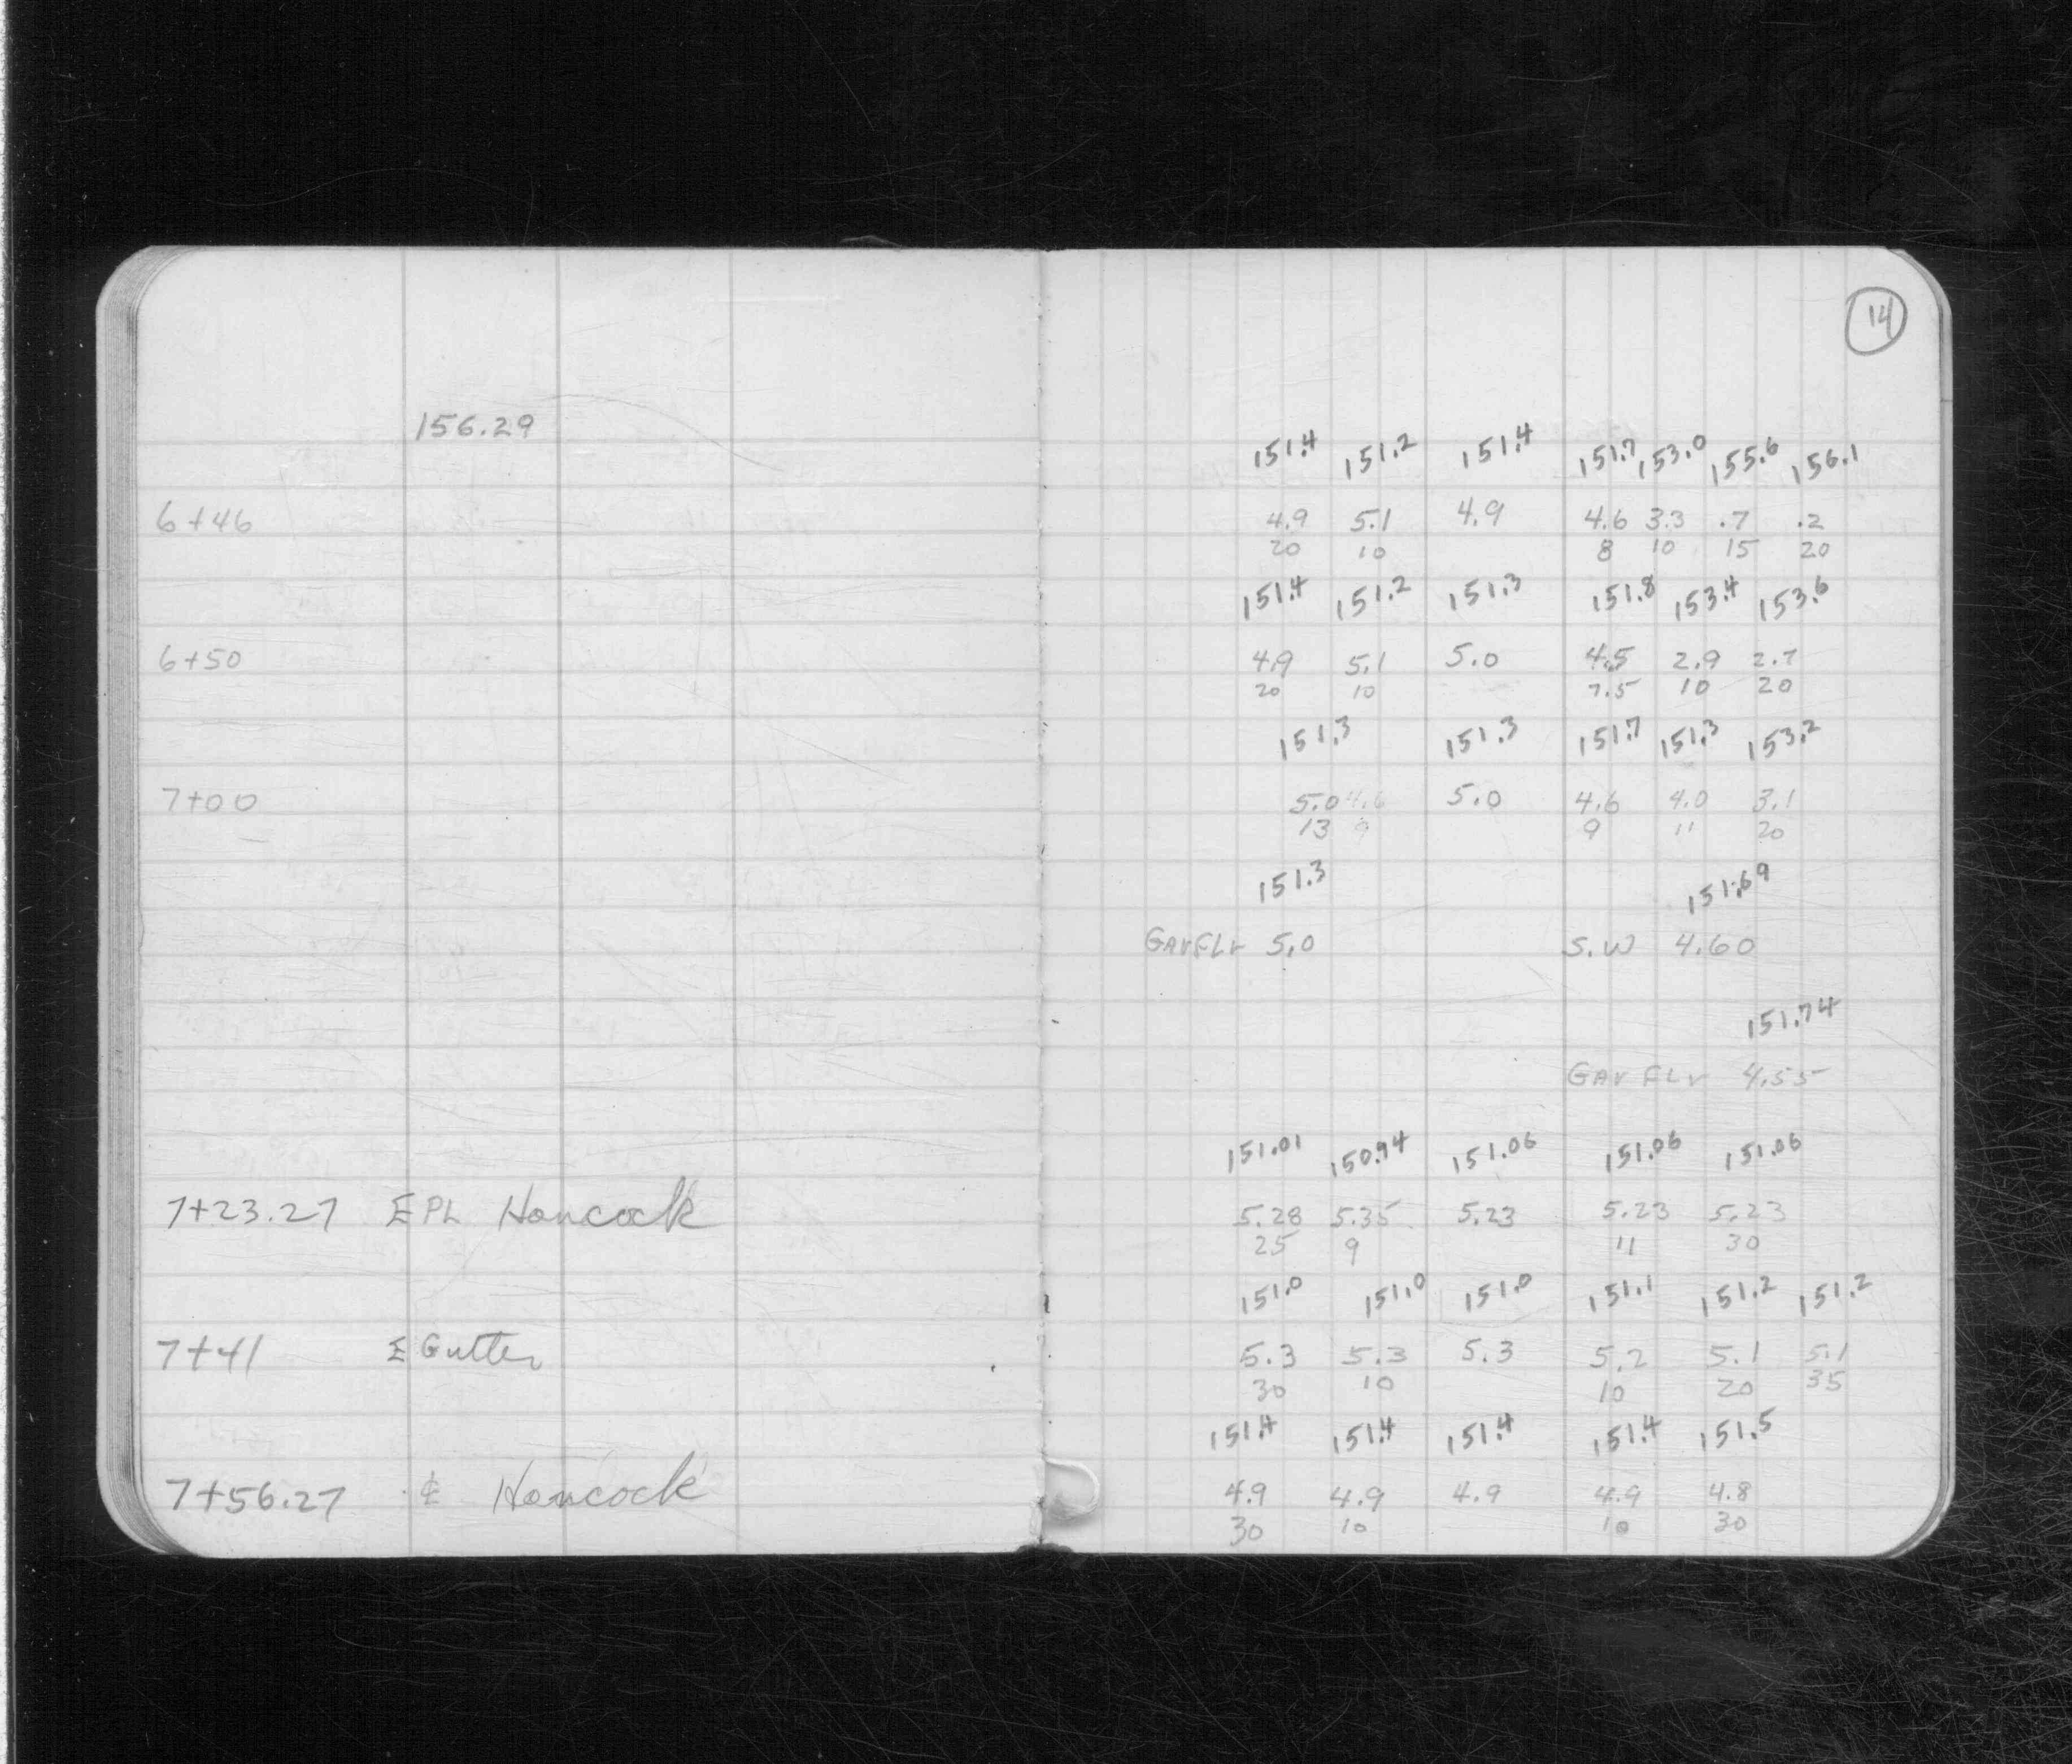 14
156.29
151.4 151.2 151.4 151.7 153.0 155.6 156.1
6+46 4.9 5.1 4.9 4.6 3.3 .7 .2
20 10 8 10 15 20
151.4 151.2 151.3 151.8 153.4 153.6
6+50 4.9 5.1 5.0 4.5 2.9 2.7
20 10 7.5 10 20
151.3 151.3 151.7 151.3 153.2
7+00 5.0 4.6 5.0 4.6 4.0 3.1
13 9 9 11 20
151.3 151.69
GarFLr 5.0 S.W 4.60
151.74
Gar FLr 4.55
151.01 150.94 151.06 151.06 151.06
7+23.27 E PL Hancock 5.28 5.35 5.23 5.23 5.23
25 9 11 30
151.0 151.0 151.0 151.1 151.2 151.2
7+41 E Gutter 5.3 5.3 5.3 5.2 5.1 5.1
30 10 10 20 35
151.4 151.4 151.4 151.4 151.5
7+56.27 ℄ Hancock 4.9 4.9 4.9 4.9 4.8
30 10 10 30